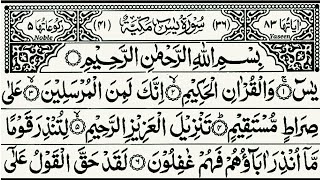 اٰیَاتُهَا ٨٣ (٣٦) سُوْرَةُ یٰسٓ مَكِّیَّةٌ (٤١) رُكُوْعَاتُهَا ٥
Noble Yaseen
بِسْمِ اللّٰهِ الرَّحْمٰنِ الرَّحِیْمِ
یٰسٓ ۝١ وَالْقُرْاٰنِ الْحَكِیْمِ ۝٢ اِنَّكَ لَمِنَ الْمُرْسَلِیْنَ ۝٣ عَلٰی
صِرَاطٍ مُّسْتَقِیْمٍ ۝٤ تَنْزِیْلَ الْعَزِیْزِ الرَّحِیْمِ ۝٥ لِتُنْذِرَ قَوْمًا
مَّاۤ اُنْذِرَ اٰبَآؤُهُمْ فَهُمْ غٰفِلُوْنَ ۝٦ لَقَدْ حَقَّ الْقَوْلُ عَلٰۤی